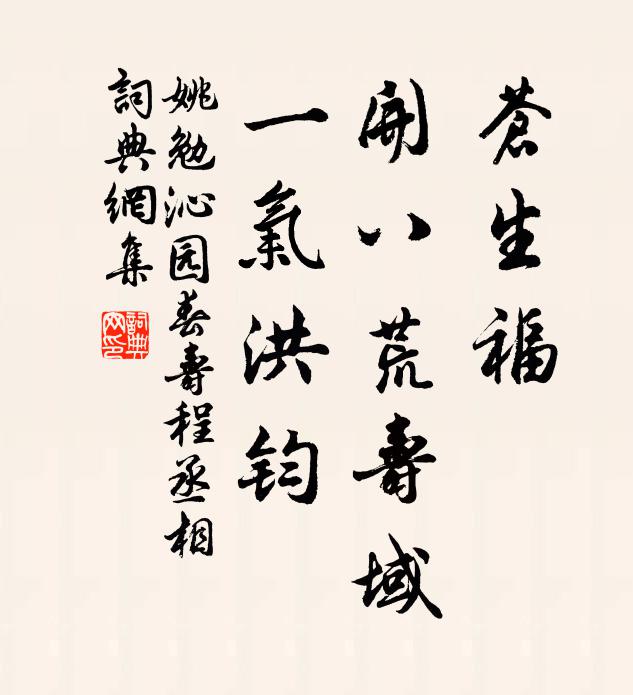 蒼生福
開八荒壽域
一氣洪钧
姚勉沁园春壽程丞相
詞典網集
詞典网印